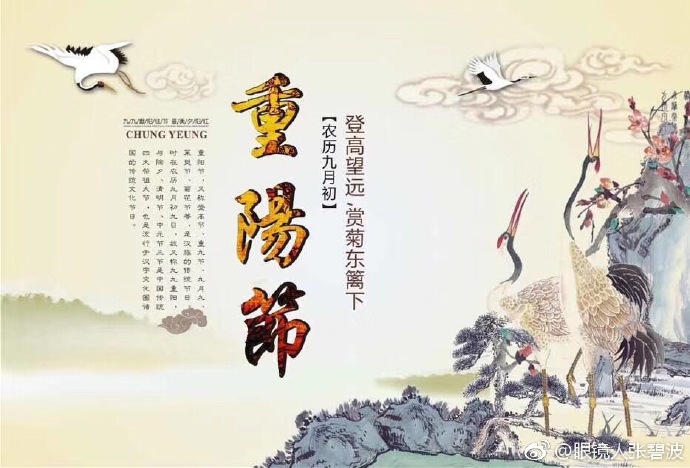 登高望远·赏菊东篱下
【农历九月初】
重陽節
CHUNG YEUNG
重阳节，又称登高节、重九节、九月九、
茱萸节、菊花节等，是汉族的传统节日。
时在农历九月初九日，故又称九九重阳，
与除夕、清明节、中元节三节是中国传统
四大祭祖大节，也是流行于汉字文化圈诸
国的传统文化节日。
@眼镜人张碧波